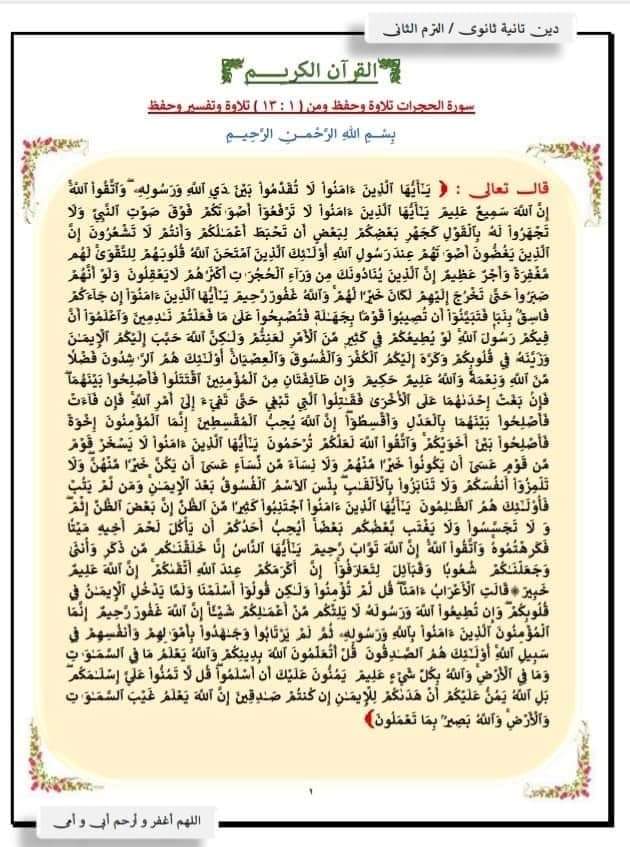 دين تانية ثانوى / الترم الثانى
القرآن الكريم
سورة الحجرات تلاوة وحفظ ومن ( ١ : ١٣ ) تلاوة وتفسير وحفظ
بِسْمِ اللَّهِ الرَّحْمَنِ الرَّحِيمِ
قال تعالى : ﴿ يَٰٓأَيُّهَا الَّذِينَ ءَامَنُوا لَا تُقَدِّمُوا بَيْنَ يَدَيِ اللَّهِ وَرَسُولِهِ وَاتَّقُوا اللَّهَ
إِنَّ اللَّهَ سَمِيعٌ عَلِيمٌ يَٰٓأَيُّهَا الَّذِينَ ءَامَنُوا لَا تَرْفَعُوا أَصْوَٰتَكُمْ فَوْقَ صَوْتِ النَّبِيِّ وَلَا
تَجْهَرُوا لَهُ بِالْقَوْلِ كَجَهْرِ بَعْضِكُمْ لِبَعْضٍ أَن تَحْبَطَ أَعْمَٰلُكُمْ وَأَنتُمْ لَا تَشْعُرُونَ إِنَّ
الَّذِينَ يَغُضُّونَ أَصْوَٰتَهُمْ عِندَ رَسُولِ اللَّهِ أُولَٰٓئِكَ الَّذِينَ امْتَحَنَ اللَّهُ قُلُوبَهُمْ لِلتَّقْوَىٰ لَهُم
مَّغْفِرَةٌ وَأَجْرٌ عَظِيمٌ إِنَّ الَّذِينَ يُنَادُونَكَ مِن وَرَآءِ الْحُجُرَٰتِ أَكْثَرُهُمْ لَا يَعْقِلُونَ وَلَوْ أَنَّهُمْ
صَبَرُوا حَتَّىٰ تَخْرُجَ إِلَيْهِمْ لَكَانَ خَيْرًا لَّهُمْ وَاللَّهُ غَفُورٌ رَّحِيمٌ يَٰٓأَيُّهَا الَّذِينَ ءَامَنُوا إِن جَآءَكُمْ
فَاسِقٌ بِنَبَإٍ فَتَبَيَّنُوا أَن تُصِيبُوا قَوْمًا بِجَهَٰلَةٍ فَتُصْبِحُوا عَلَىٰ مَا فَعَلْتُمْ نَٰدِمِينَ وَاعْلَمُوا أَنَّ
فِيكُمْ رَسُولَ اللَّهِ لَوْ يُطِيعُكُمْ فِي كَثِيرٍ مِّنَ الْأَمْرِ لَعَنِتُّمْ وَلَٰكِنَّ اللَّهَ حَبَّبَ إِلَيْكُمُ الْإِيمَٰنَ
وَزَيَّنَهُ فِي قُلُوبِكُمْ وَكَرَّهَ إِلَيْكُمُ الْكُفْرَ وَالْفُسُوقَ وَالْعِصْيَانَ أُولَٰٓئِكَ هُمُ الرَّٰشِدُونَ فَضْلًا
مِّنَ اللَّهِ وَنِعْمَةً وَاللَّهُ عَلِيمٌ حَكِيمٌ وَإِن طَآئِفَتَانِ مِنَ الْمُؤْمِنِينَ اقْتَتَلُوا فَأَصْلِحُوا بَيْنَهُمَا
فَإِن بَغَتْ إِحْدَىٰهُمَا عَلَى الْأُخْرَىٰ فَقَٰتِلُوا الَّتِي تَبْغِي حَتَّىٰ تَفِيٓءَ إِلَىٰ أَمْرِ اللَّهِ فَإِن فَآءَتْ
فَأَصْلِحُوا بَيْنَهُمَا بِالْعَدْلِ وَأَقْسِطُوا إِنَّ اللَّهَ يُحِبُّ الْمُقْسِطِينَ إِنَّمَا الْمُؤْمِنُونَ إِخْوَةٌ
فَأَصْلِحُوا بَيْنَ أَخَوَيْكُمْ وَاتَّقُوا اللَّهَ لَعَلَّكُمْ تُرْحَمُونَ يَٰٓأَيُّهَا الَّذِينَ ءَامَنُوا لَا يَسْخَرْ قَوْمٌ
مِّن قَوْمٍ عَسَىٰ أَن يَكُونُوا خَيْرًا مِّنْهُمْ وَلَا نِسَآءٌ مِّن نِّسَآءٍ عَسَىٰ أَن يَكُنَّ خَيْرًا مِّنْهُنَّ وَلَا
تَلْمِزُوا أَنفُسَكُمْ وَلَا تَنَابَزُوا بِالْأَلْقَٰبِ بِئْسَ الِاسْمُ الْفُسُوقُ بَعْدَ الْإِيمَٰنِ وَمَن لَّمْ يَتُبْ
فَأُولَٰٓئِكَ هُمُ الظَّٰلِمُونَ يَٰٓأَيُّهَا الَّذِينَ ءَامَنُوا اجْتَنِبُوا كَثِيرًا مِّنَ الظَّنِّ إِنَّ بَعْضَ الظَّنِّ إِثْمٌ
وَلَا تَجَسَّسُوا وَلَا يَغْتَب بَّعْضُكُم بَعْضًا أَيُحِبُّ أَحَدُكُمْ أَن يَأْكُلَ لَحْمَ أَخِيهِ مَيْتًا
فَكَرِهْتُمُوهُ وَاتَّقُوا اللَّهَ إِنَّ اللَّهَ تَوَّابٌ رَّحِيمٌ يَٰٓأَيُّهَا النَّاسُ إِنَّا خَلَقْنَٰكُم مِّن ذَكَرٍ وَأُنثَىٰ
وَجَعَلْنَٰكُمْ شُعُوبًا وَقَبَآئِلَ لِتَعَارَفُوا إِنَّ أَكْرَمَكُمْ عِندَ اللَّهِ أَتْقَىٰكُمْ إِنَّ اللَّهَ عَلِيمٌ
خَبِيرٌ قَالَتِ الْأَعْرَابُ ءَامَنَّا قُل لَّمْ تُؤْمِنُوا وَلَٰكِن قُولُوٓا أَسْلَمْنَا وَلَمَّا يَدْخُلِ الْإِيمَٰنُ فِي
قُلُوبِكُمْ وَإِن تُطِيعُوا اللَّهَ وَرَسُولَهُ لَا يَلِتْكُم مِّنْ أَعْمَٰلِكُمْ شَيْـًٔا إِنَّ اللَّهَ غَفُورٌ رَّحِيمٌ إِنَّمَا
الْمُؤْمِنُونَ الَّذِينَ ءَامَنُوا بِاللَّهِ وَرَسُولِهِ ثُمَّ لَمْ يَرْتَابُوا وَجَٰهَدُوا بِأَمْوَٰلِهِمْ وَأَنفُسِهِمْ فِي
سَبِيلِ اللَّهِ أُولَٰٓئِكَ هُمُ الصَّٰدِقُونَ قُلْ أَتُعَلِّمُونَ اللَّهَ بِدِينِكُمْ وَاللَّهُ يَعْلَمُ مَا فِي السَّمَٰوَٰتِ
وَمَا فِي الْأَرْضِ وَاللَّهُ بِكُلِّ شَيْءٍ عَلِيمٌ يَمُنُّونَ عَلَيْكَ أَنْ أَسْلَمُوا قُل لَّا تَمُنُّوا عَلَيَّ إِسْلَٰمَكُم
بَلِ اللَّهُ يَمُنُّ عَلَيْكُمْ أَنْ هَدَىٰكُمْ لِلْإِيمَٰنِ إِن كُنتُمْ صَٰدِقِينَ إِنَّ اللَّهَ يَعْلَمُ غَيْبَ السَّمَٰوَٰتِ
وَالْأَرْضِ وَاللَّهُ بَصِيرٌ بِمَا تَعْمَلُونَ ﴾
١
اللهم أغفر و أرحم أبى و أمى